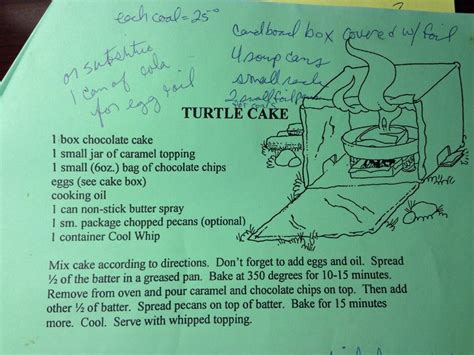 each coal = 25°
cardboard box covered w/ foil
4 soup cans
small rack
2 small foil pans
or substitute
1 can of cola
for egg & oil
TURTLE CAKE
1 box chocolate cake
1 small jar of caramel topping
1 small (6oz.) bag of chocolate chips
eggs (see cake box)
cooking oil
1 can non-stick butter spray
1 sm. package chopped pecans (optional)
1 container Cool Whip
Mix cake according to directions. Don't forget to add eggs and oil. Spread
½ of the batter in a greased pan. Bake at 350 degrees for 10-15 minutes.
Remove from oven and pour caramel and chocolate chips on top. Then add
other ½ of batter. Spread pecans on top of batter. Bake for 15 minutes
more. Cool. Serve with whipped topping.